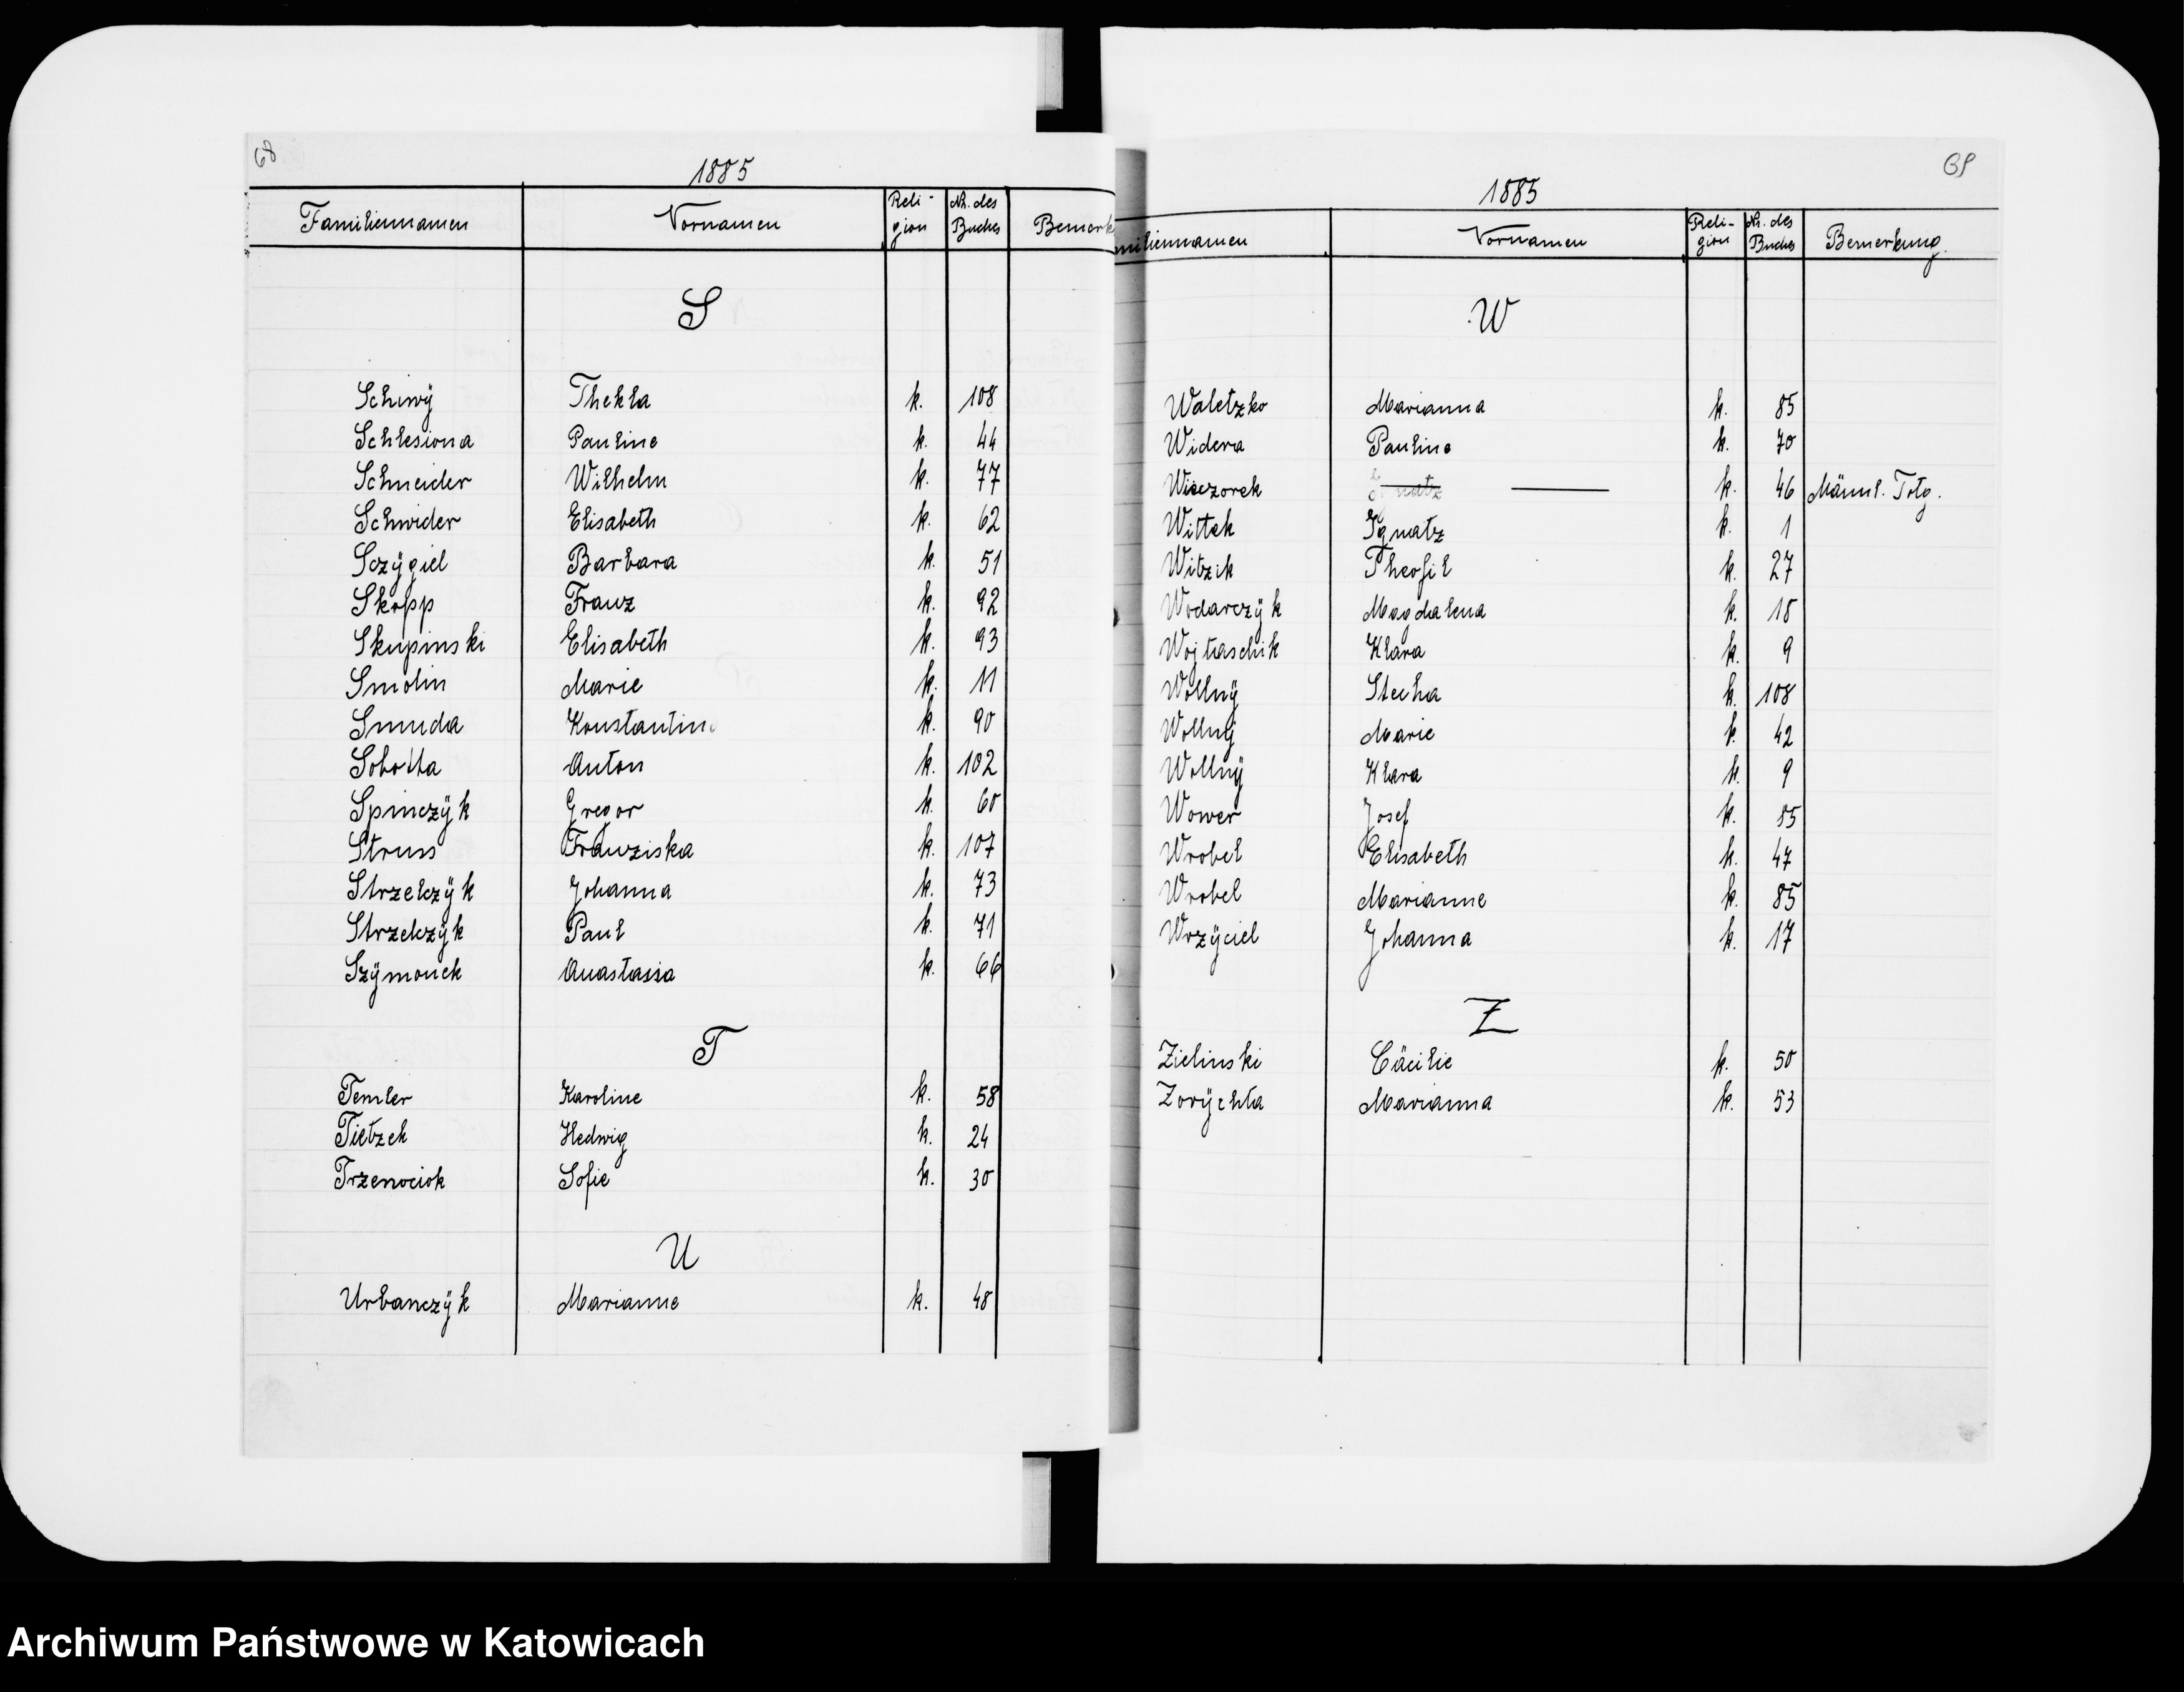 68
1885
Familiennamen Vornamen Reli-gion Nr. des Buches Bemerk
S
Schiwÿ Thekla k. 108
Schlesiona Pauline k. 44
Schneider Wilhelm k. 77
Schwider Elisabeth k. 62
Sczÿgiel Barbara k. 51
Skopp Franz k. 92
Skupinski Elisabeth k. 93
Smolin Marie k. 11
Smuda Konstantine k. 90
Sobotta Anton k. 102
Spinczÿk Gregor k. 60
Struss Franziska k. 107
Strzelczÿk Johanna k. 73
Strzelczÿk Paul k. 71
Szÿmonek Anastasia k. 66
T
Temler Karoline k. 58
Tietzek Hedwig k. 24
Trzenociok Sofie k. 30
U
Urbanczÿk Marianne k. 48
69
1885
miliennamen Vornamen Reli-gion Nr. des Buches Bemerkung.
W
Waletzko Marianna k. 85
Widera Pauline k. 70
Wieczorek Ignatz — k. 46 Männl. Totg.
Wittek Ignatz k. 1
Witzik Theofil k. 27
Wodarczÿk Magdalena k. 18
Wojtaschik Klara k. 9
Wollnÿ k. 108
Wollnÿ Marie k. 42
Wollnÿ Klara k. 9
Wower Josef k. 85
Wrobel Elisabeth k. 47
Wrobel Marianne k. 85
Wrzÿciel Johanna k. 17
Z
Zielinski Cäcilie k. 50
Zorÿchta Marianna k. 53
Archiwum Państwowe w Katowicach